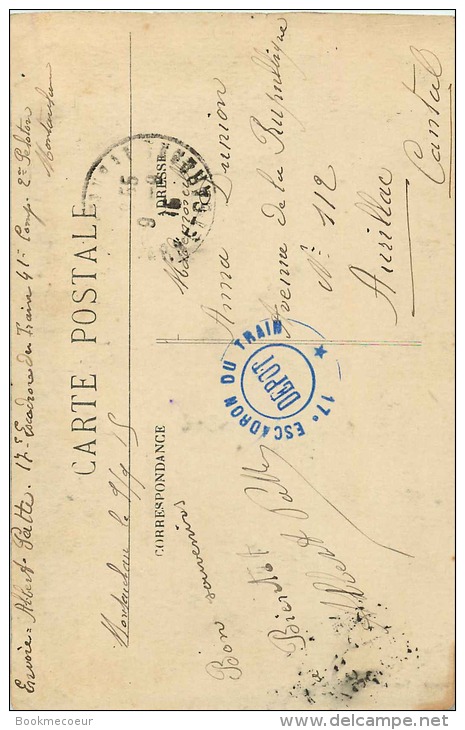 Envoie= Albert Patte. 17e Escadron du Train 41e Comp. 2e Peloton
Montauban
CARTE POSTALE
Montauban le 5/9 15
CORRESPONDANCE
ADRESSE
Bon souvenirs
Bientôt
Albert Patte
Mademoiselle
Anna Junion
Avenue de la République
N° 112
Aurillac
Cantal
17e ESCADRON DU TRAIN ★
DEPOT
Bookmecoeur
www.delcampe.net